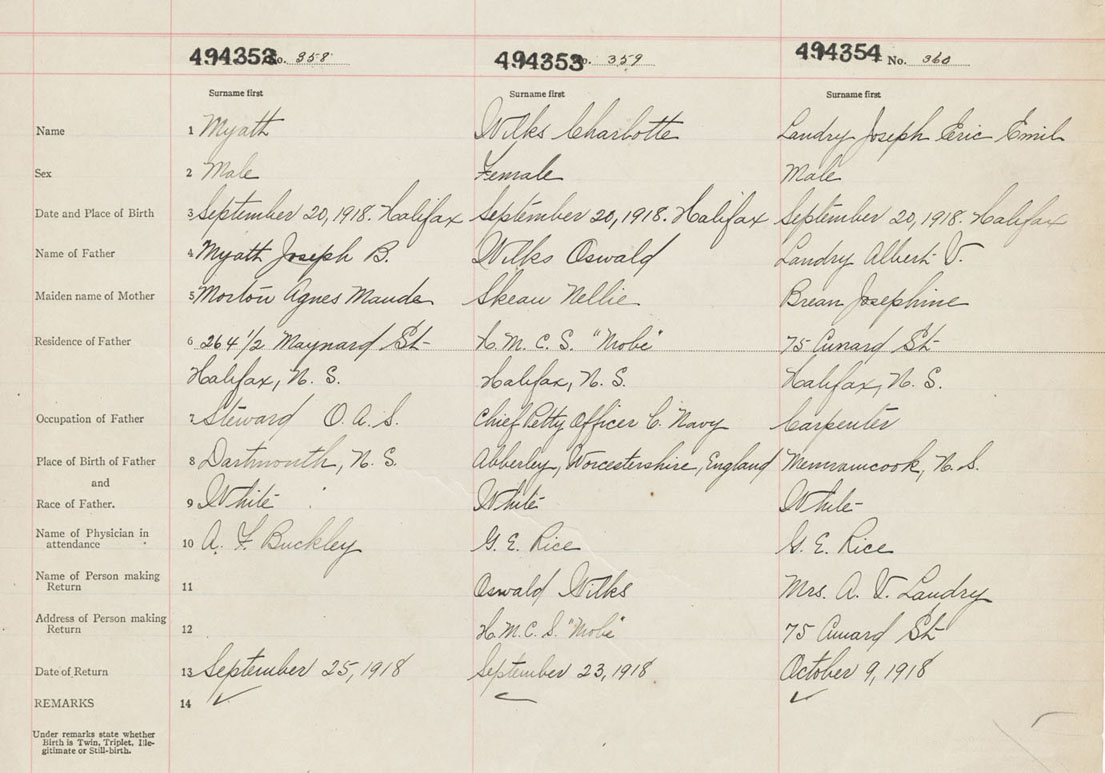 494352 No. 358 494353 No. 359 494354 No. 360
Surname first Surname first Surname first
Name 1 Myath Wilks Charlotte Landry Joseph Eric Emil
Sex 2 Male Female Male
Date and Place of Birth 3 September 20, 1918. Halifax September 20, 1918. Halifax September 20, 1918. Halifax
Name of Father 4 Myath Joseph B. Wilks Oswald Landry Albert V.
Maiden name of Mother 5 Morton Agnes Maude Skeau Nellie Brean Josephine
Residence of Father 6 264 1/2 Maynard St H.M.C.S. "Niobe" 75 Cunard St
Halifax, N.S. Halifax, N.S. Halifax, N.S.
Occupation of Father 7 Steward O.A.S. Chief Petty Officer C. Navy Carpenter
Place of Birth of Father 8 Dartmouth, N.S. Abberley, Worcestershire, England Memramcook, N.S.
and
Race of Father. 9 White White White
Name of Physician in
attendance 10 A. F. Buckley G. E. Rice G. E. Rice
Name of Person making
Return 11 Oswald Wilks Mrs. A. V. Landry
Address of Person making
Return 12 H.M.C.S. "Niobe" 75 Cunard St
Date of Return 13 September 25, 1918 September 23, 1918 October 9, 1918
REMARKS 14
Under remarks state whether
Birth is Twin, Triplet, Ille-
gitimate or Still-birth.